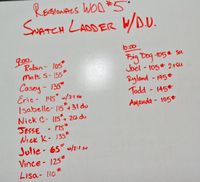 REGIONALS WOD #5
SNATCH LADDER W/D.U.
9:00
Robin - 105#
Matt S - 135#
Casey - 135#
Eric - 145#
Isabelle - 115# + 31 du
Nick C - 115# + 20 du
JESSE - 175#
Nick K - 135#
Julie - 65#
Vance - 125#
Lisa - 110#
10:00
Big Dog - 105# SU
Joel - 105#
Ryland - 195#
Todd - 145#
Amanda - 105#